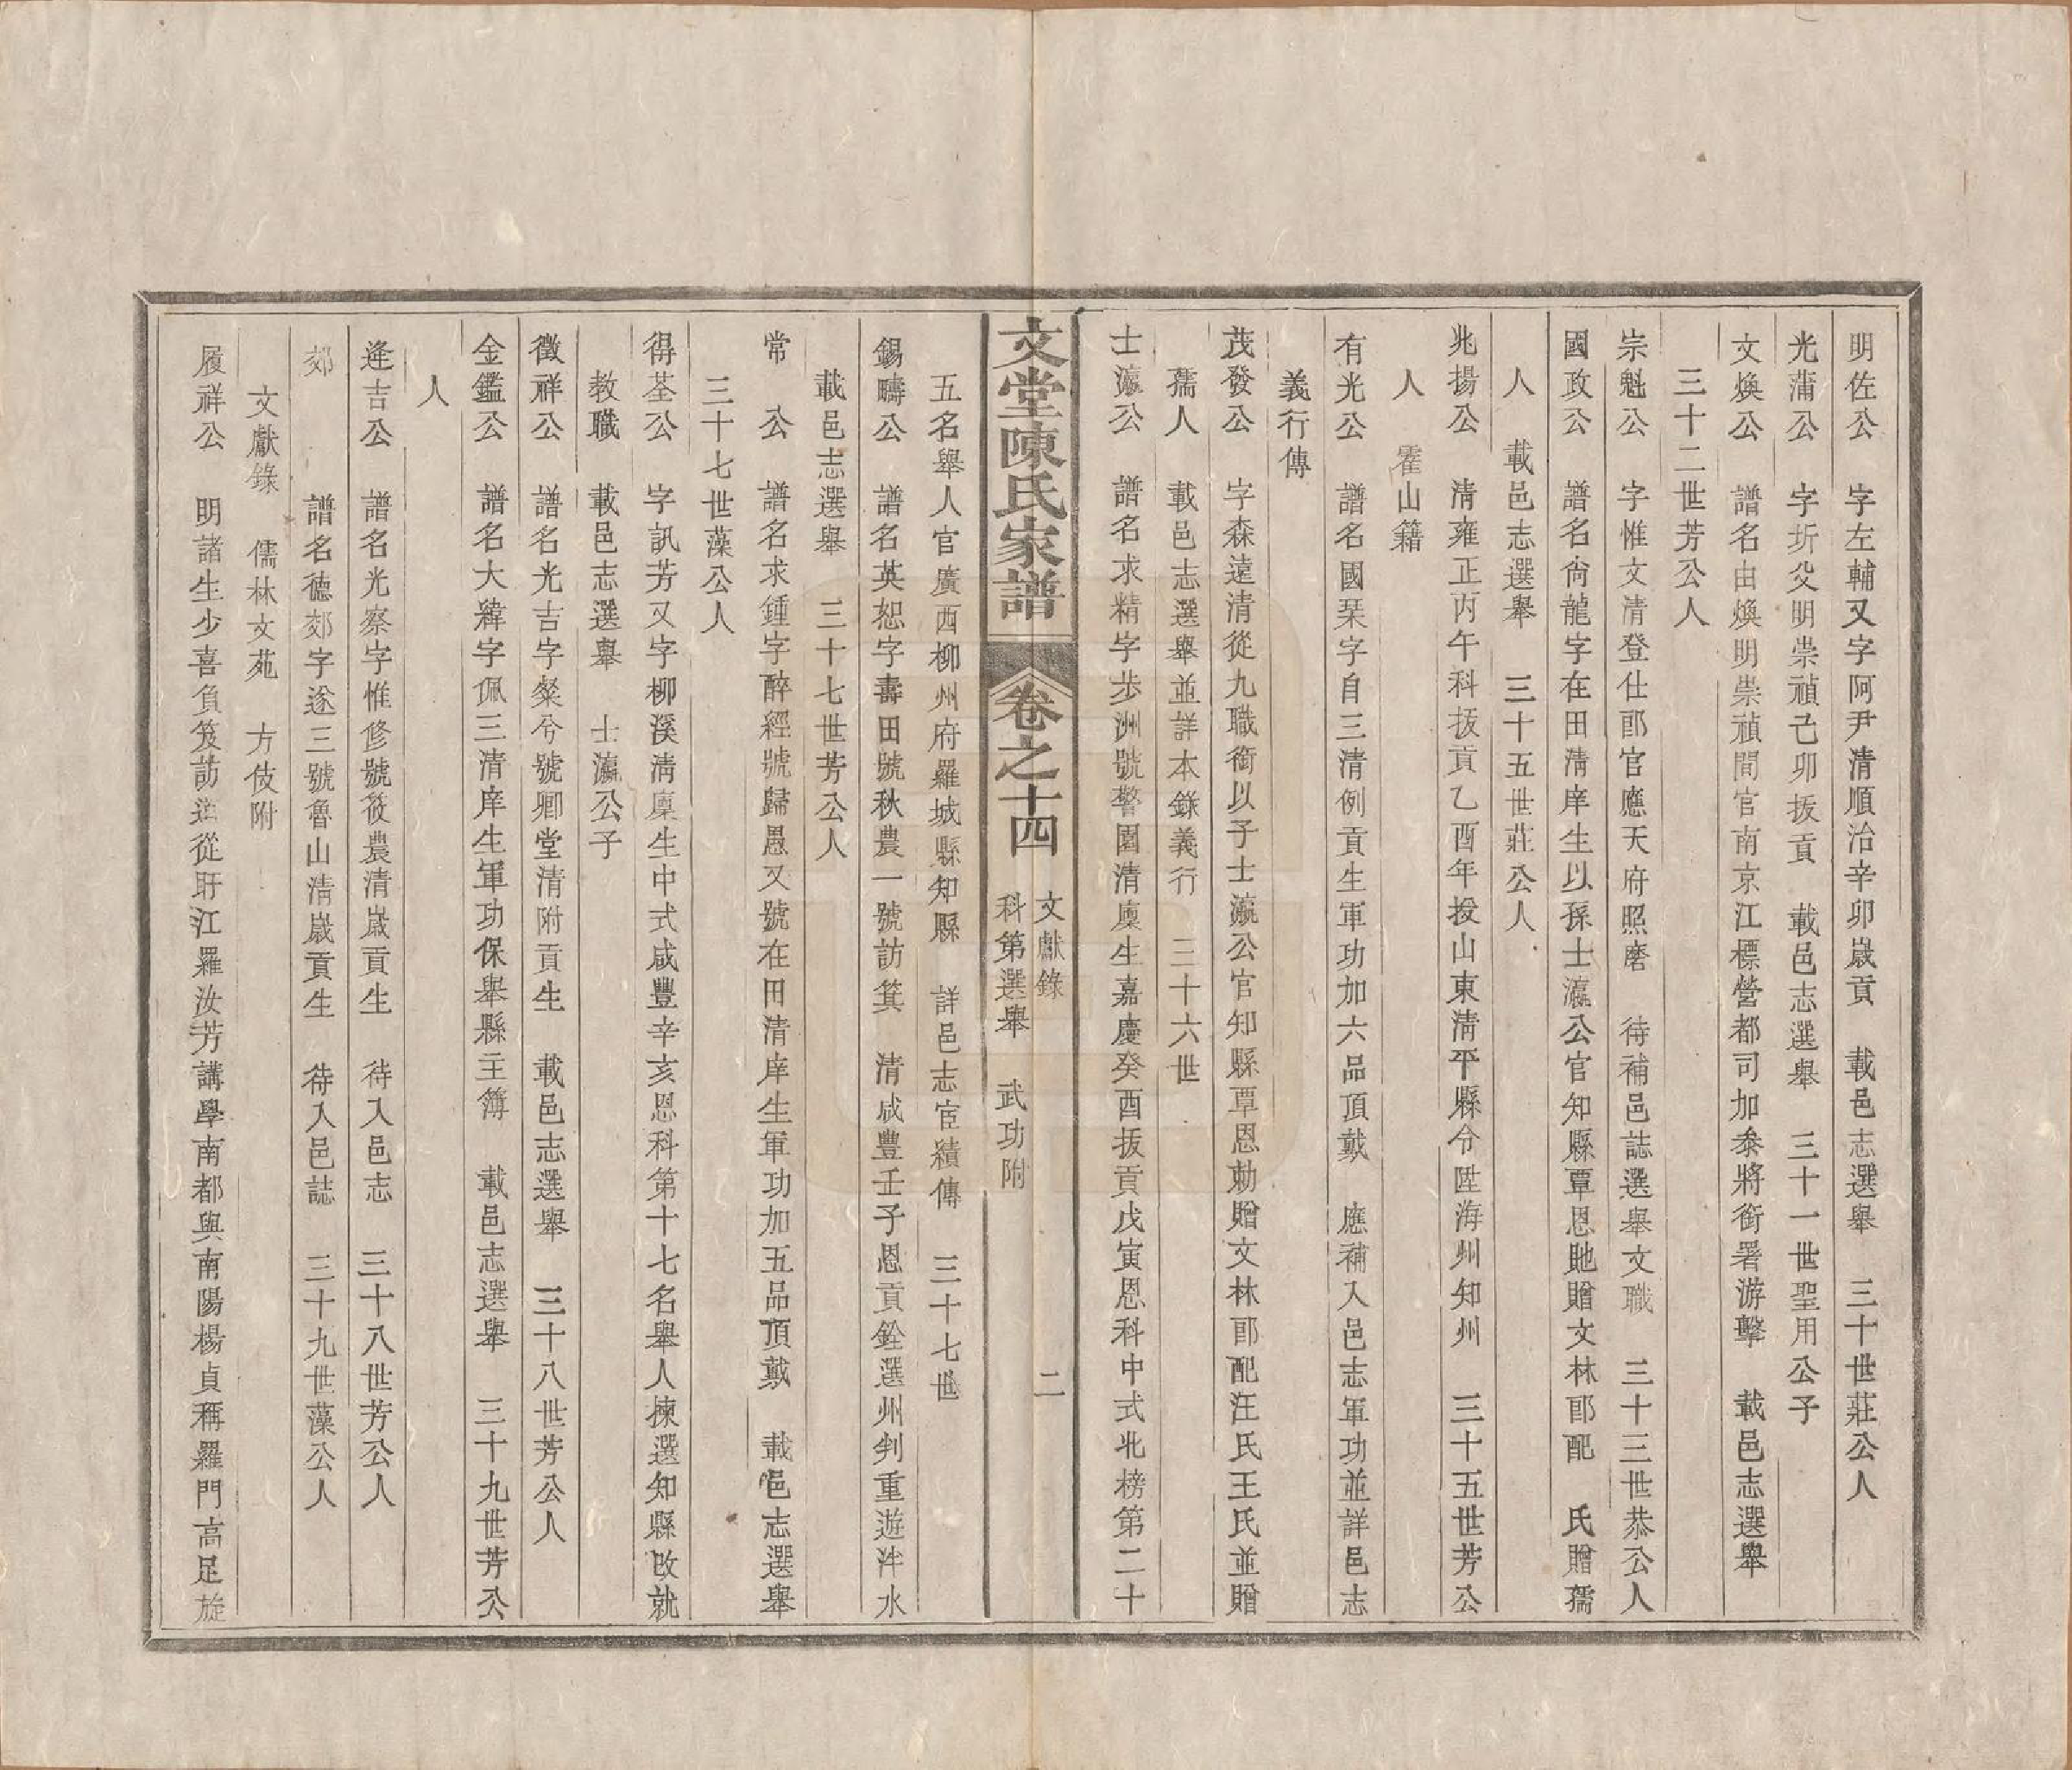 明佐公　字左輔又字阿尹清順治辛卯歲貢　載邑志選舉　三十世莊公人
光蒲公　字圻父明崇禎己卯拔貢　載邑志選舉　三十一世聖用公子
文煥公　譜名由煥明崇禎間官南京江標營都司加叅將銜署游擊　載邑志選舉
三十二世芳公人
宗魁公　字惟文清登仕郎官應天府照磨　待補邑誌選舉文職　三十三世恭公人
國政公　譜名尙龍字在田淸庠生以孫士瀛公官知縣覃恩貤贈文林郎配　氏贈孺
人　載邑志選舉　三十五世莊公人
兆揚公　淸雍正丙午科拔貢乙酉年授山東淸平縣令陞海州知州　三十五世芳公
人　霍山籍
有光公　譜名國琹字自三清例貢生軍功加六品頂戴　應補入邑志軍功並詳邑志
義行傳
茂發公　字森遠清從九職銜以子士瀛公官知縣覃恩勅贈文林郎配汪氏王氏並贈
孺人　載邑志選舉並詳本錄義行　三十六世
士瀛公　譜名求精字步洲號警園清廩生嘉慶癸酉拔貢戊寅恩科中式北榜第二十
文堂陳氏家譜　卷之十四　文獻錄　科第選舉　武功附　二
五名舉人官廣西柳州府羅城縣知縣　詳邑志宦績傳　三十七世
錫疇公　譜名英恕字壽田號秋農一號訪箕　清咸豐壬子恩貢銓選州判重遊泮水
載邑志選舉　三十七世芳公人
常　公　譜名求鍾字醉經號歸愚又號在田清庠生軍功加五品頂戴　載邑志選舉
三十七世藻公人
得荃公　字訊芳又字柳溪淸廩生中式咸豐辛亥恩科第十七名舉人揀選知縣改就
教職　載邑志選舉　士瀛公子
徵祥公　譜名光吉字粲兮號卿堂清附貢生　載邑志選舉　三十八世芳公人
金鑑公　譜名大緯字佩三清庠生軍功保舉縣主簿　載邑志選舉　三十九世芳公
人
逢吉公　譜名光察字惟修號筱農清歲貢生　待入邑志　三十八世芳公人
郊　　　譜名德郊字遂三號魯山清歲貢生　待入邑誌　三十九世藻公人
文獻錄　儒林文苑　方伎附
履祥公　明諸生少喜負笈訪道從盱江羅汝芳講學南都與南陽楊貞稱羅門高足旋